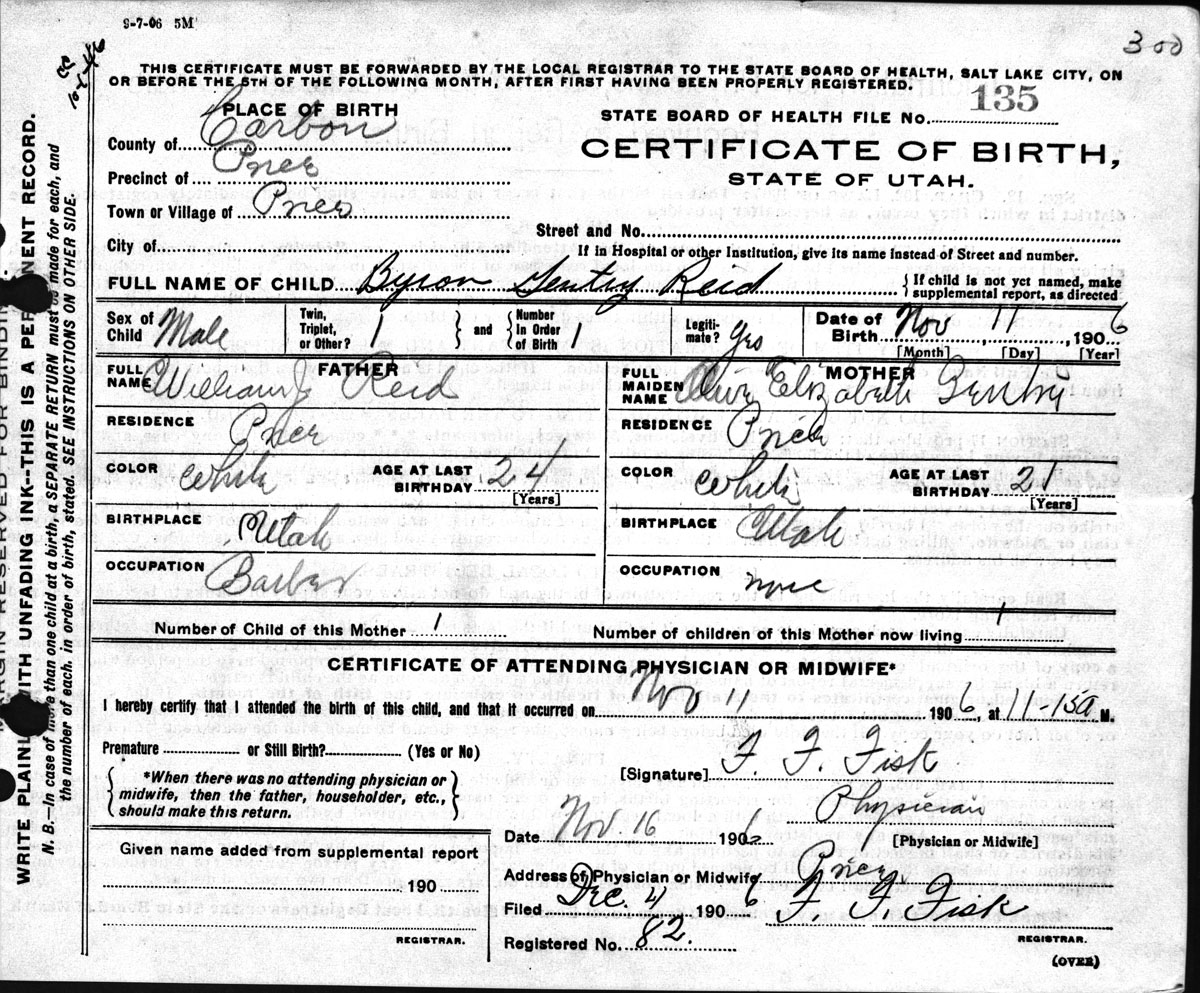 9-7-06 5M
300
THIS CERTIFICATE MUST BE FORWARDED BY THE LOCAL REGISTRAR TO THE STATE BOARD OF HEALTH, SALT LAKE CITY, ON
OR BEFORE THE 5TH OF THE FOLLOWING MONTH, AFTER FIRST HAVING BEEN PROPERLY REGISTERED.
PLACE OF BIRTH
County of Carbon
Precinct of Price
Town or Village of Price
City of
STATE BOARD OF HEALTH FILE No. 135
CERTIFICATE OF BIRTH,
STATE OF UTAH.
Street and No.
If in Hospital or other Institution, give its name instead of Street and number.
FULL NAME OF CHILD Byron Gentry Reid { If child is not yet named, make supplemental report, as directed
Sex of Child Male Twin, Triplet, or Other? 1 } and { Number in Order of Birth 1 Legitimate? Yes Date of Birth Nov 11, 1906
[Month] [Day] [Year]
FATHER
FULL NAME William J Reid
RESIDENCE Price
COLOR White AGE AT LAST BIRTHDAY 24
[Years]
BIRTHPLACE Utah
OCCUPATION Barber
MOTHER
FULL MAIDEN NAME Olive Elizabeth Gentry
RESIDENCE Price
COLOR White AGE AT LAST BIRTHDAY 21
[Years]
BIRTHPLACE Utah
OCCUPATION none
Number of Child of this Mother 1 Number of children of this Mother now living 1
CERTIFICATE OF ATTENDING PHYSICIAN OR MIDWIFE*
I hereby certify that I attended the birth of this child, and that it occurred on Nov 11 1906, at 11-15a M.
Premature or Still Birth? (Yes or No)
{ *When there was no attending physician or midwife, then the father, householder, etc., should make this return. }
[Signature] F. F. Fisk
Physician
Date Nov 16 190 [Physician or Midwife]
Address of Physician or Midwife Price
Filed Dec. 4 1906 F. F. Fisk
REGISTRAR.
Registered No. 82.
Given name added from supplemental report
190
REGISTRAR.
(OVER)
MARGIN RESERVED FOR BINDING
WRITE PLAINLY WITH UNFADING INK--THIS IS A PERMANENT RECORD.
N. B.--In case of more than one child at a birth, a SEPARATE RETURN must be made for each, and
the number of each, in order of birth, stated. SEE INSTRUCTIONS ON OTHER SIDE.